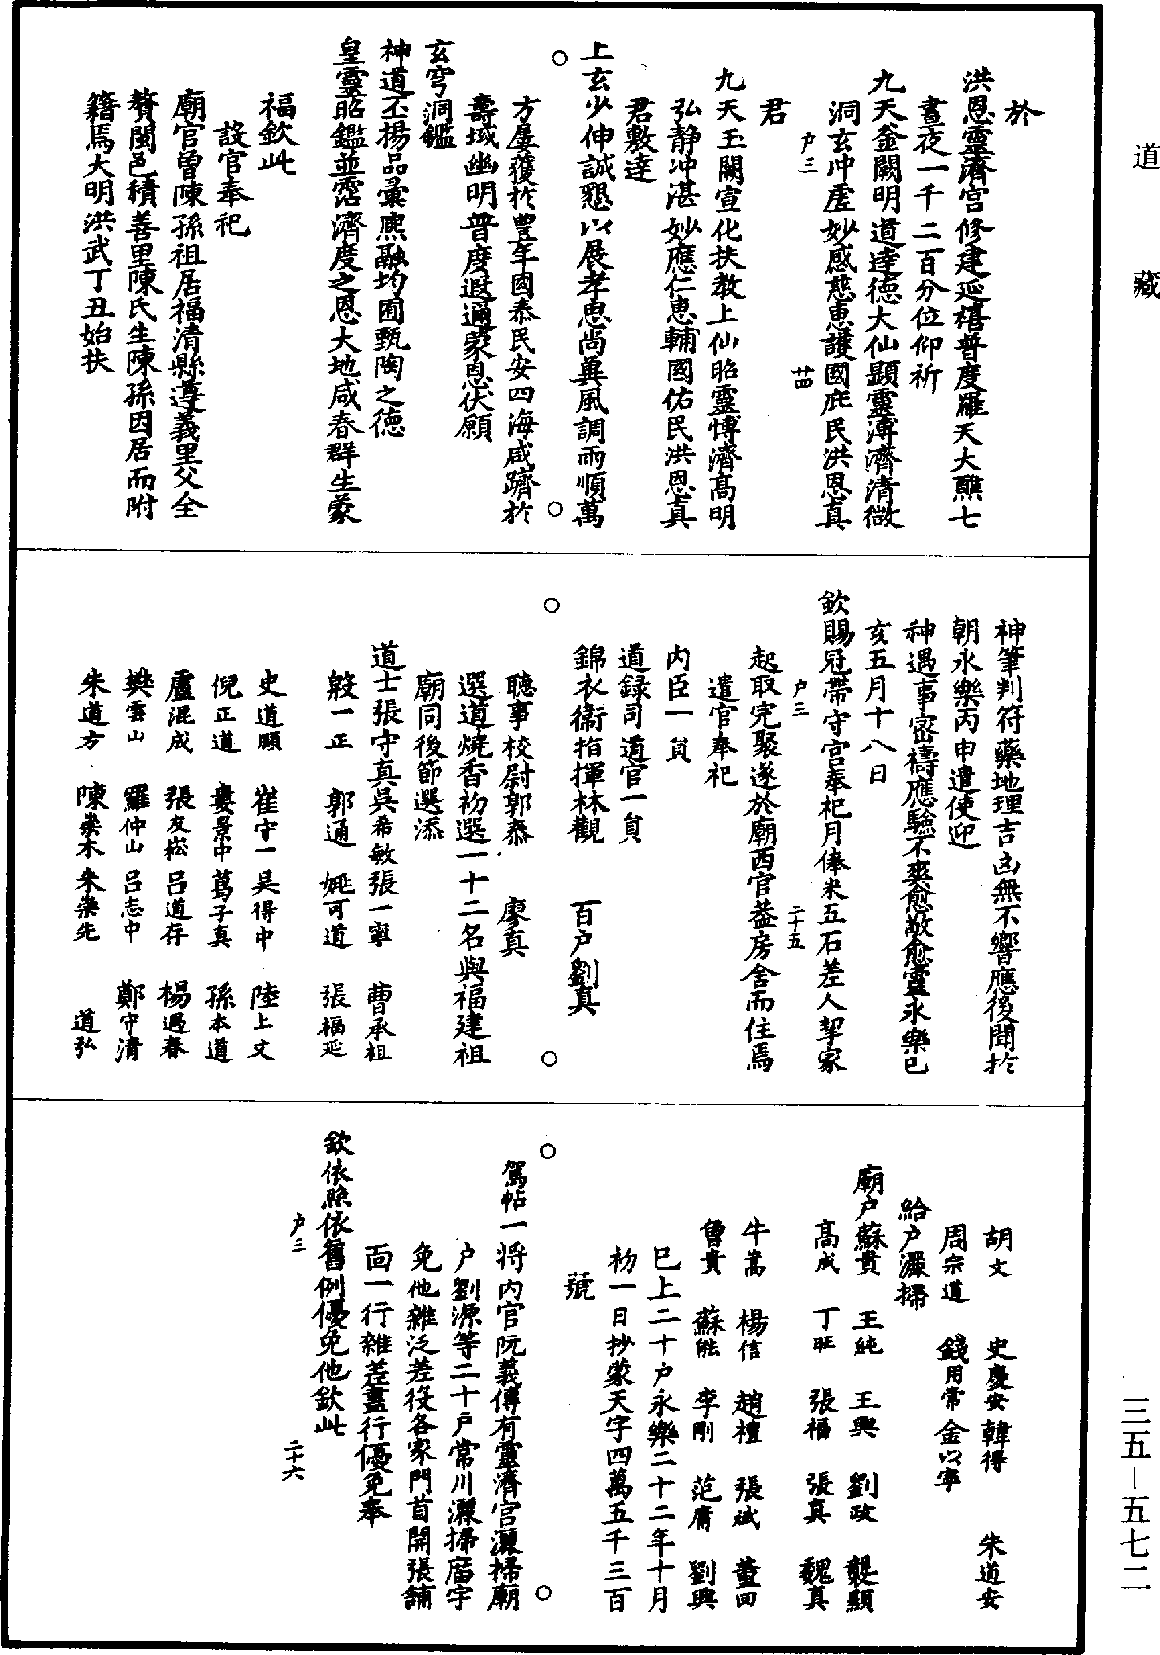 道　藏
於
洪恩靈濟宫修建延禧普度羅天大醮七
晝夜一千二百分位仰祈
九天金闕明道達德大仙顯靈溥濟清微
洞玄沖虚妙感慈惠護國庇民洪恩真
户三　廿四
君
九天玉闕宣化扶教上仙昭靈博濟高明
弘静沖湛妙應仁惠輔國佑民洪恩真
君敷達
上玄少伸誠懇以展孝思尚冀風調雨順萬
方屢獲於豐年國泰民安四海咸躋於
壽域幽明普度遐邇蒙恩伏願
玄穹洞鑑
神道丕揚品彙熙融均囿甄陶之德
皇靈昭鑑並霑濟度之恩大地咸春群生蒙
福欽此
設官奉祀
廟官曾陳孫祖居福清縣遵義里父全
贅閩邑積善里陳氏生陳孫因居而附
籍焉大明洪武丁丑始扶
神筆判符藥地理吉凶無不響應後聞於
朝永樂丙申遣使迎
神遇事密禱應驗不爽愈敬愈靈永樂己
亥五月十八日
欽賜冠帶守宫奉祀月俸米五石差人挈家
户三　二十五
起取完聚遂於廟西官蓋房舍而住焉
遣官奉祀
内臣一員
道録司道官一員
錦衣衞指揮林觀　百户劉真
聽事校尉郭恭　廖真
選道燒香初選一十二名與福建祖
廟同後節選添
道士張守真吳希敏張一寧　曹承祖
殷一正　郭通　姚可道　張福延
史道頤　崔守一吳得中　陸上文
倪正道　婁景中　葛子真　孫本道
盧混成　張友崧　吕道存　楊遇春
樊雲山　羅仲山　吕志中　鄭守清
朱道方　陳崇木　朱崇先　道弘
胡文　史慶安　韓得　朱道安
周宗道　錢用常　金以寧
給户灑掃
廟户蘇貴　王純　王興　劉政　龔顯
高成　丁旺　張福　張真　魏真
牛嵩　楊信　趙禮　張斌　董田
魯貴　蘇能　李剛　范庸　劉興
已上二十户永樂二十二年十月
初一日抄蒙天字四萬五千三百
號
駕帖一將内官阮義傳有靈濟宫灑掃廟
户劉源等二十户常川灑掃廟宇
免他雜泛差役各家門首開張舖
面一行雜差盡行優免奉
欽依照依舊例優免他欽此
户三　二十六
三五—五七二